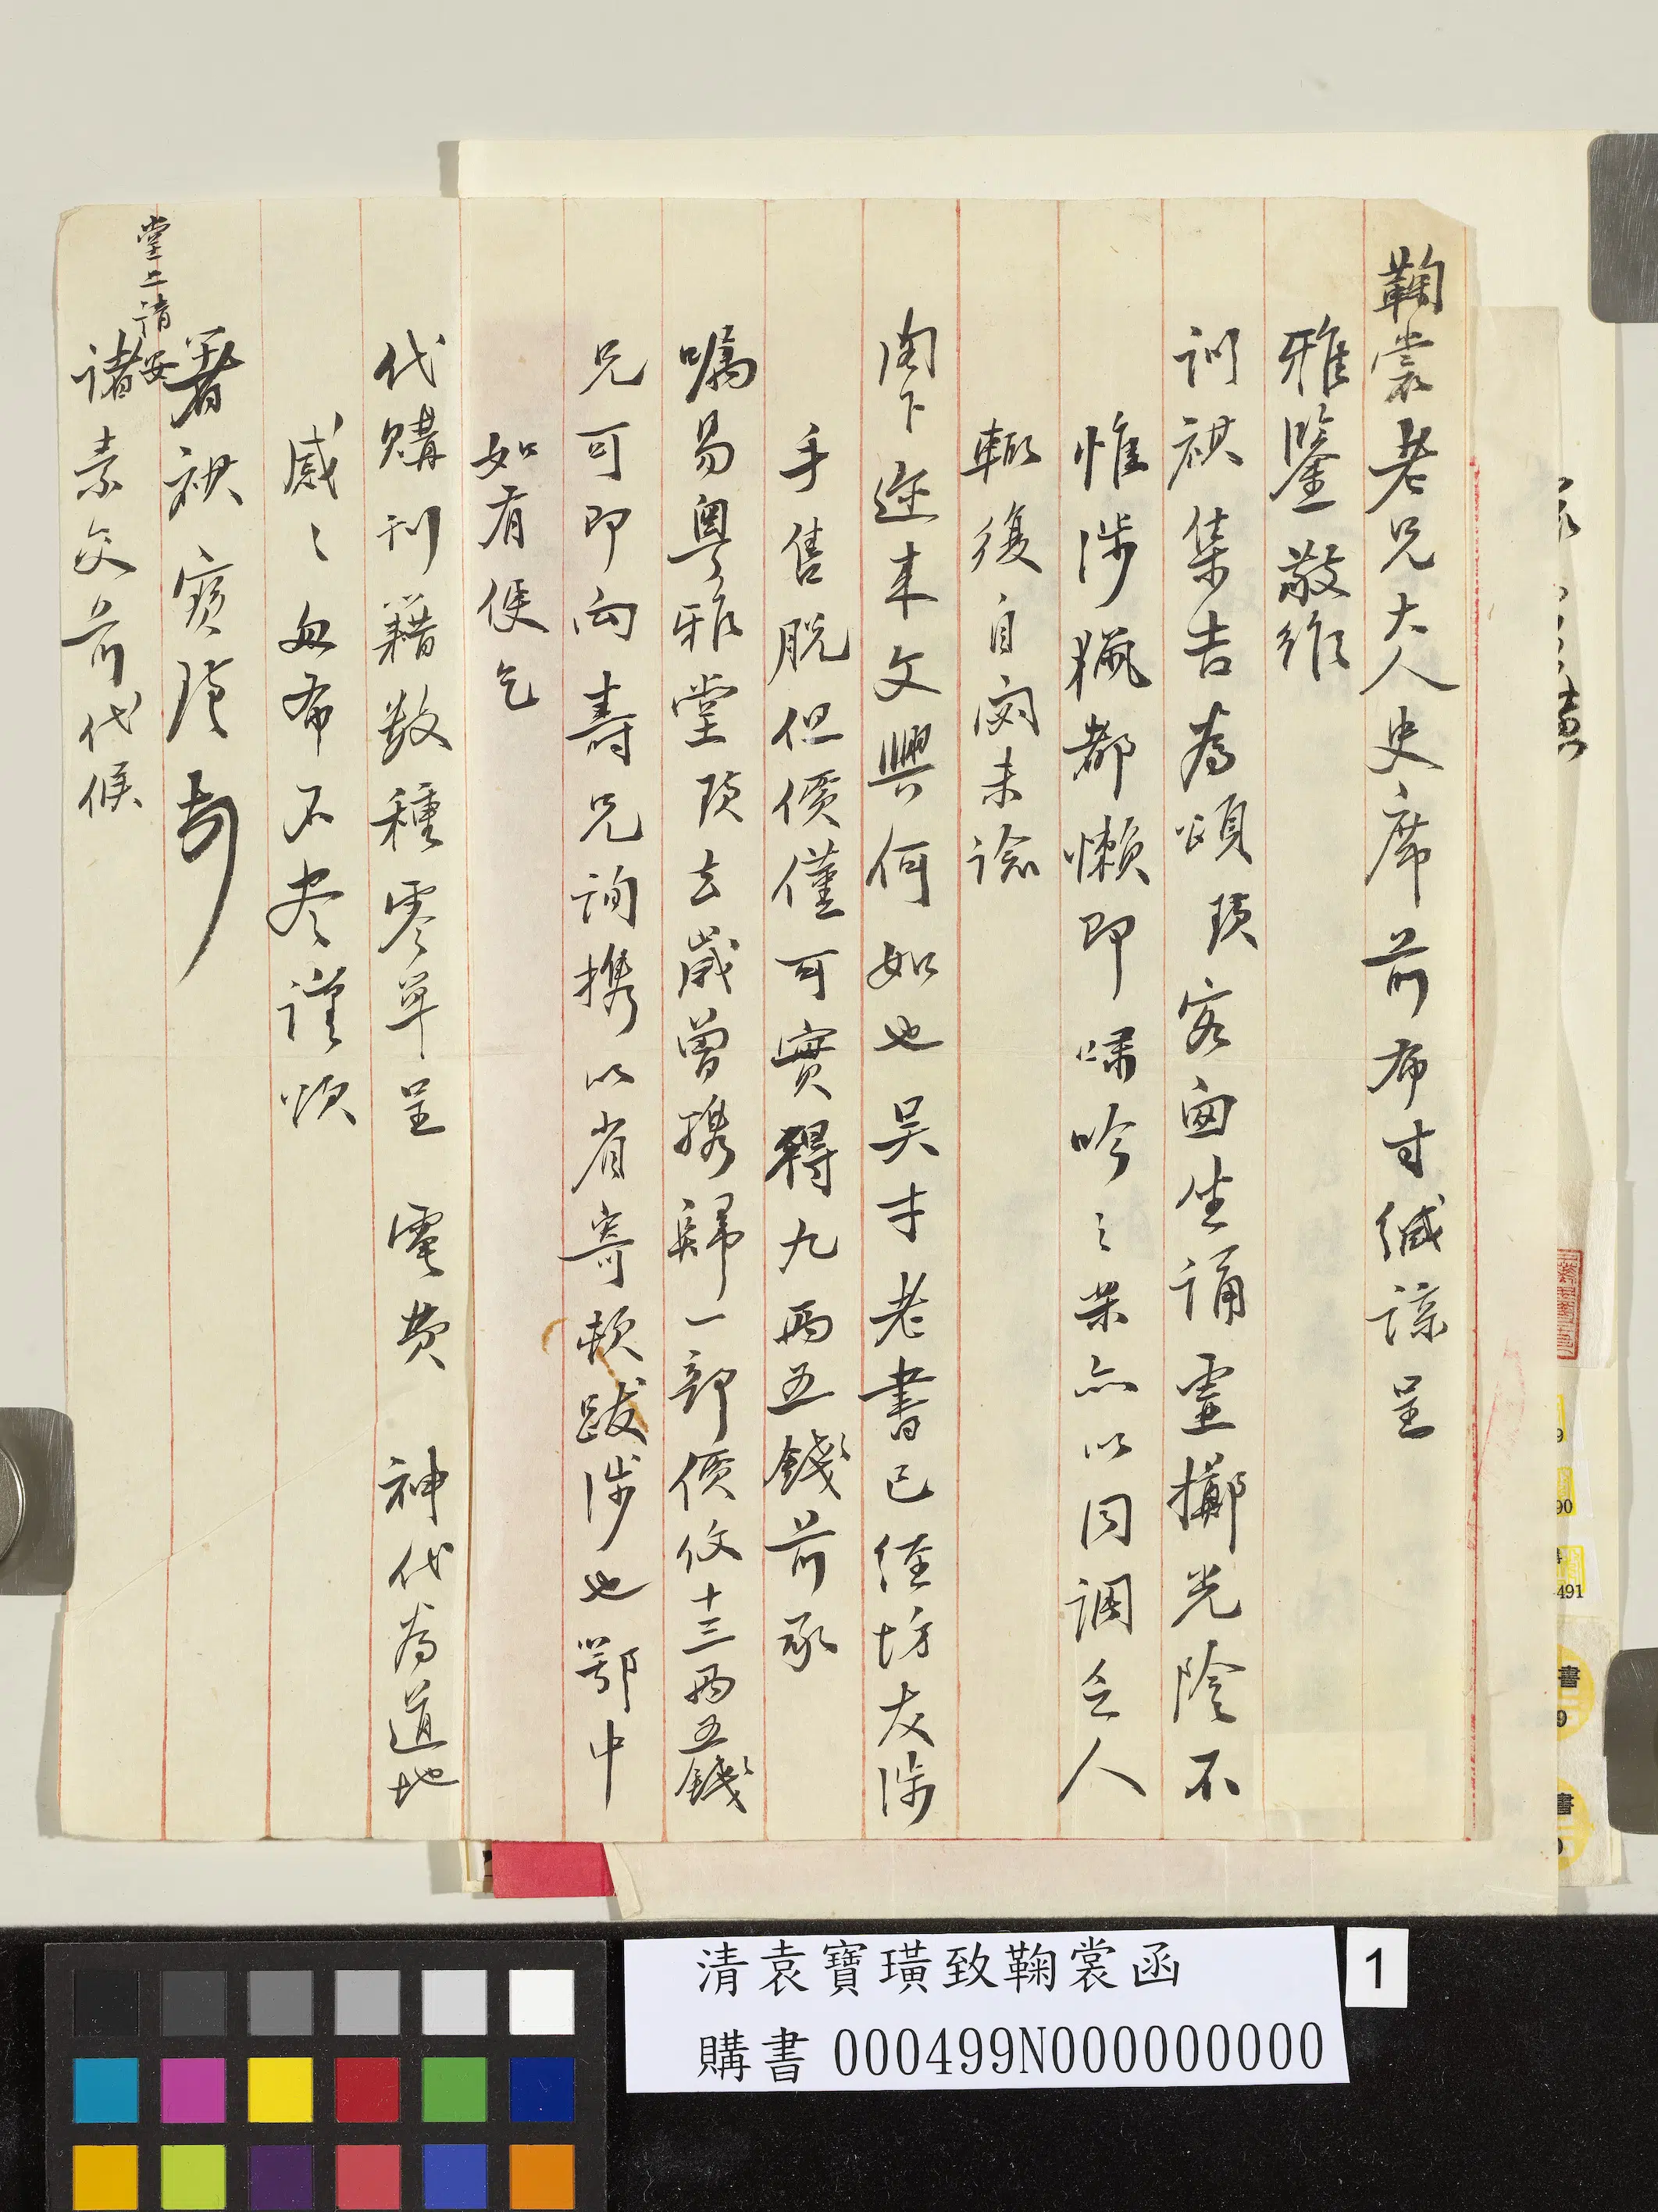 鞠裳老兄大人史席前布寸緘諒呈
雅鑒敬維
訓祺集吉為頌璜客囪坐誦虛擲光陰不
惟涉獵都懶即嘯吟之案亦以同調乏人
輒復自閟未諗
閣下邇來文興何如也吴才老書已經坊友涉
手售脫但價僅可實得九兩五錢前承
囑易粵雅堂璜去歲曾攜歸一部價佽十三兩五錢
兄可即向壽兄詢攜以省寄軟跋涉也鄂中
如有便乞
代購刊籍數種零單呈 電費 神代為道地
感〻匆布不尽謹頌
著祺 寶璜
堂上請安
諸素交前代候
清袁寶璜致鞠裳函
1
購書000499N000000000
90
491
書
9
書